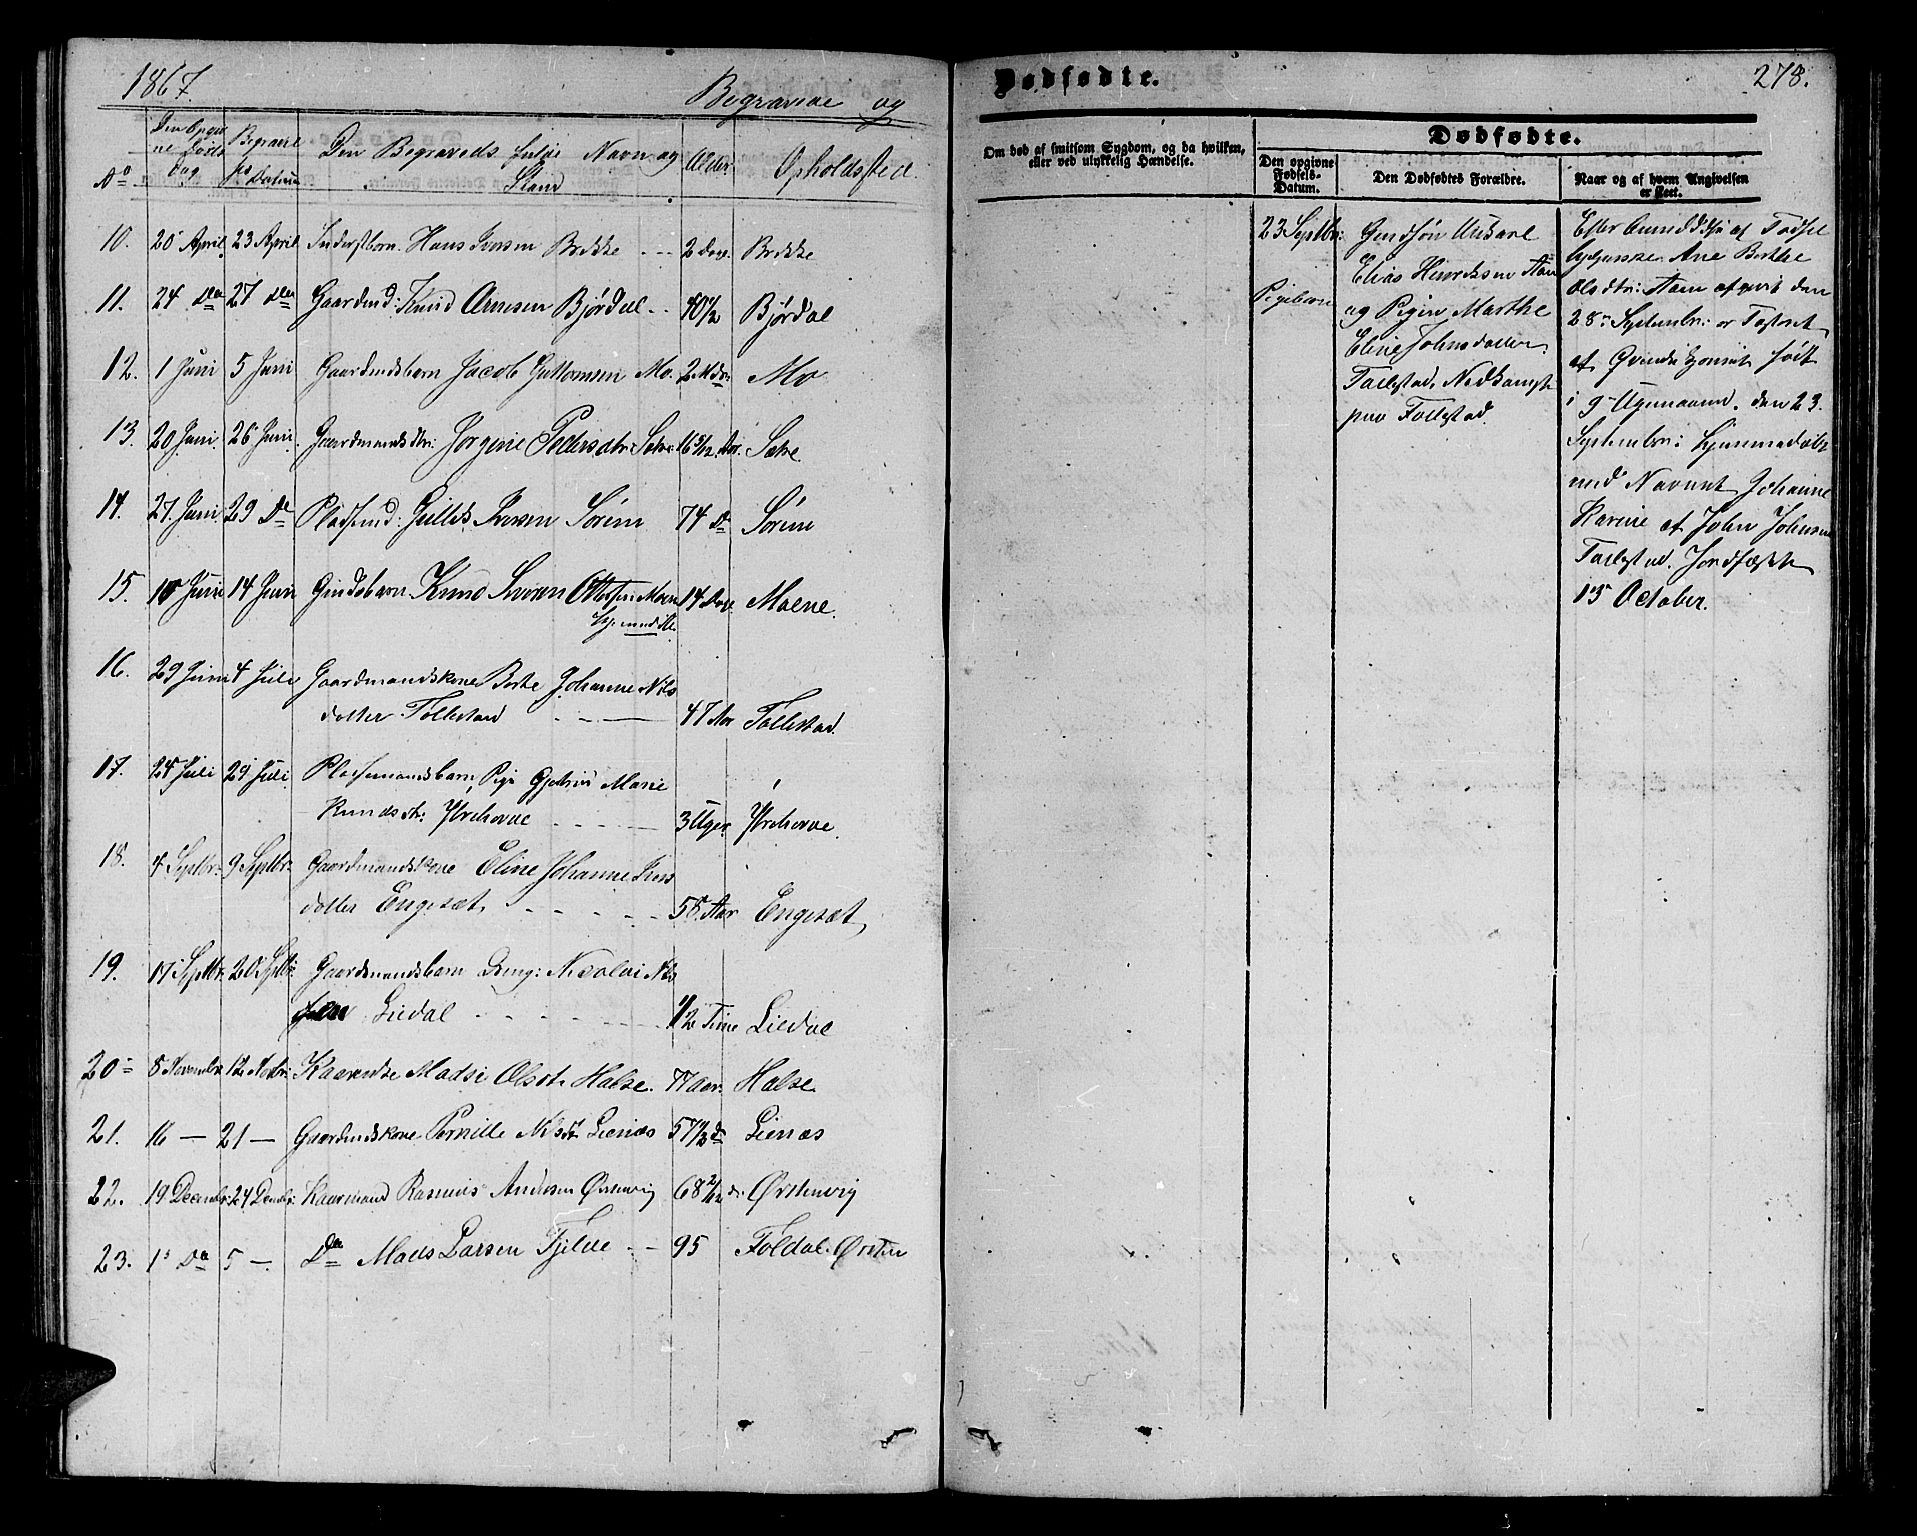 1867.
Begravne og
Dødfødte.
278.
No
Den Opgivne Døds Dag
Begravelses Datum
Den Begravedes fulde Navn og Stand
Alder
Opholdssted.
10. 20 April 23 April Inderstbarn Hans Iversen Brekke - - 2 Dage Brekke
11. 24 De 27 De Gaardmd: Knud Arnesen Bjørdal - - 40 1/2 Bjørdal
12. 1 Juni 5 Juni Gaardmdsbarn Jacob Guttormsen Mo. 2 Mdr: Mo
13. 20 Juni 26 Juni. Gaardmandsdtr: Jørgine Pedersdtr: Sætre 16 5/12 Aar. Sætre
14. 27. Juni 29 De Pladsmd: Gullik Iversen Sørim 74 De Sørim
15. 10 Juni 14 Juni Knud Iversen Moene 14 Dage Moene.
16. 29 Juni 4 Juli Gaardmandskone Berte Johanne Nils
datter Follestad - - - 47 Aar Follestad.
17. 24 Juli 29 Juli Pladsemandsbarn, Pige Marie
Knudsdtr: - - - - 3 Uger
18. 4 Septbr: 9 Septbr: Gaardmandskone Eline Johanne
datter Engesæt - - - - 58. Aar Engesæt
19. 17 Septbr: 20 Septbr: Gaardmandsbarn Dreng: Nicolai Nils
sen Liedal - - - - 1/2 Time Liedal
20 8 Novembr 12 Novbr: Kaarenke Madsi Olsdt. Halse. 77 aar. Halse
21. 16 — 21 — Gaardmdskone Pernille Nilsdt Lienæs 57 1/2 De Lienæs
22. 19 Decembr: 24 Decmbr: Kaarmand Rasmus Andersen Ørstenvig 68 2/12 d: Ørstenvig
23. 1s Da 5 —. De Mads Larsen Fjelde - - 95 Foldal. Ørsten
Om død af smitsom Sygdom, og da hvilken,
eller ved ulykkelig Hændelse.
Dødfødte.
Den opgivne
Fødsels-
Datum.
Den Dødfødtes Forældre.
Naar og af hvem Angivelsen
er skeet.
23 Septbr:
Pigebarn
Ungkarl
Elias Henriksen Aam
og Pigen Marthe
Eline Johnsdatter
Follestad.
Follestad.
Efter af Fødsel
hjelperske Ane Berthe
Olsdtr: Aam afgivt den
28 Septembr: er Fosteret
af født
i 9 Ugemaaned. den 23.
Septembr: hjemmedøbt
med Navnet Johanne
Karine af John Johnsen
Follestad. Jordfæstet
13 October.